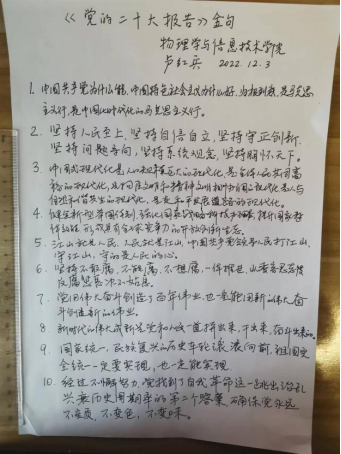 《党的二十大报告》金句
物理学与信息技术学院
卢红兵 2022.12.3
1. 中国共产党为什么能,中国特色社会主义为什么好,归根到底,是马克思
主义行,是中国化时代化的马克思主义行。
2. 坚持人民至上,坚持自信自立,坚持守正创新,
坚持问题导向,坚持系统观念,坚持胸怀天下。
3. 中国式现代化是人口规模巨大的现代化,是全体人民共同富
裕的现代化,是物质文明和精神文明相协调的现代化,是人与
自然和谐共生的现代化,是走和平发展道路的现代化。
4. 健全新型举国体制,强化国家战略科技力量,提升国家创新
体系效能,形成具有全球竞争力的开放创新生态。
5. 江山就是人民,人民就是江山,中国共产党领导人民打江山,
守江山,守的是人民的心。
6. 坚持不敢腐、不能腐、不想腐一体推进,
7. 党用伟大奋斗创造了百年伟业,也一定能用新的伟大奋
斗创造新的伟业。
8. 新时代的伟大成就是党和人民一道拼出来、干出来、奋斗出来的。
9. 国家统一、民族复兴的历史车轮滚滚向前,祖国完
全统一一定要实现,也一定能实现。
10. 经过不懈努力,党找到了自我革命这一跳出治乱
兴衰历史周期率的第二个答案,确保党永远
不变质、不变色、不变味。